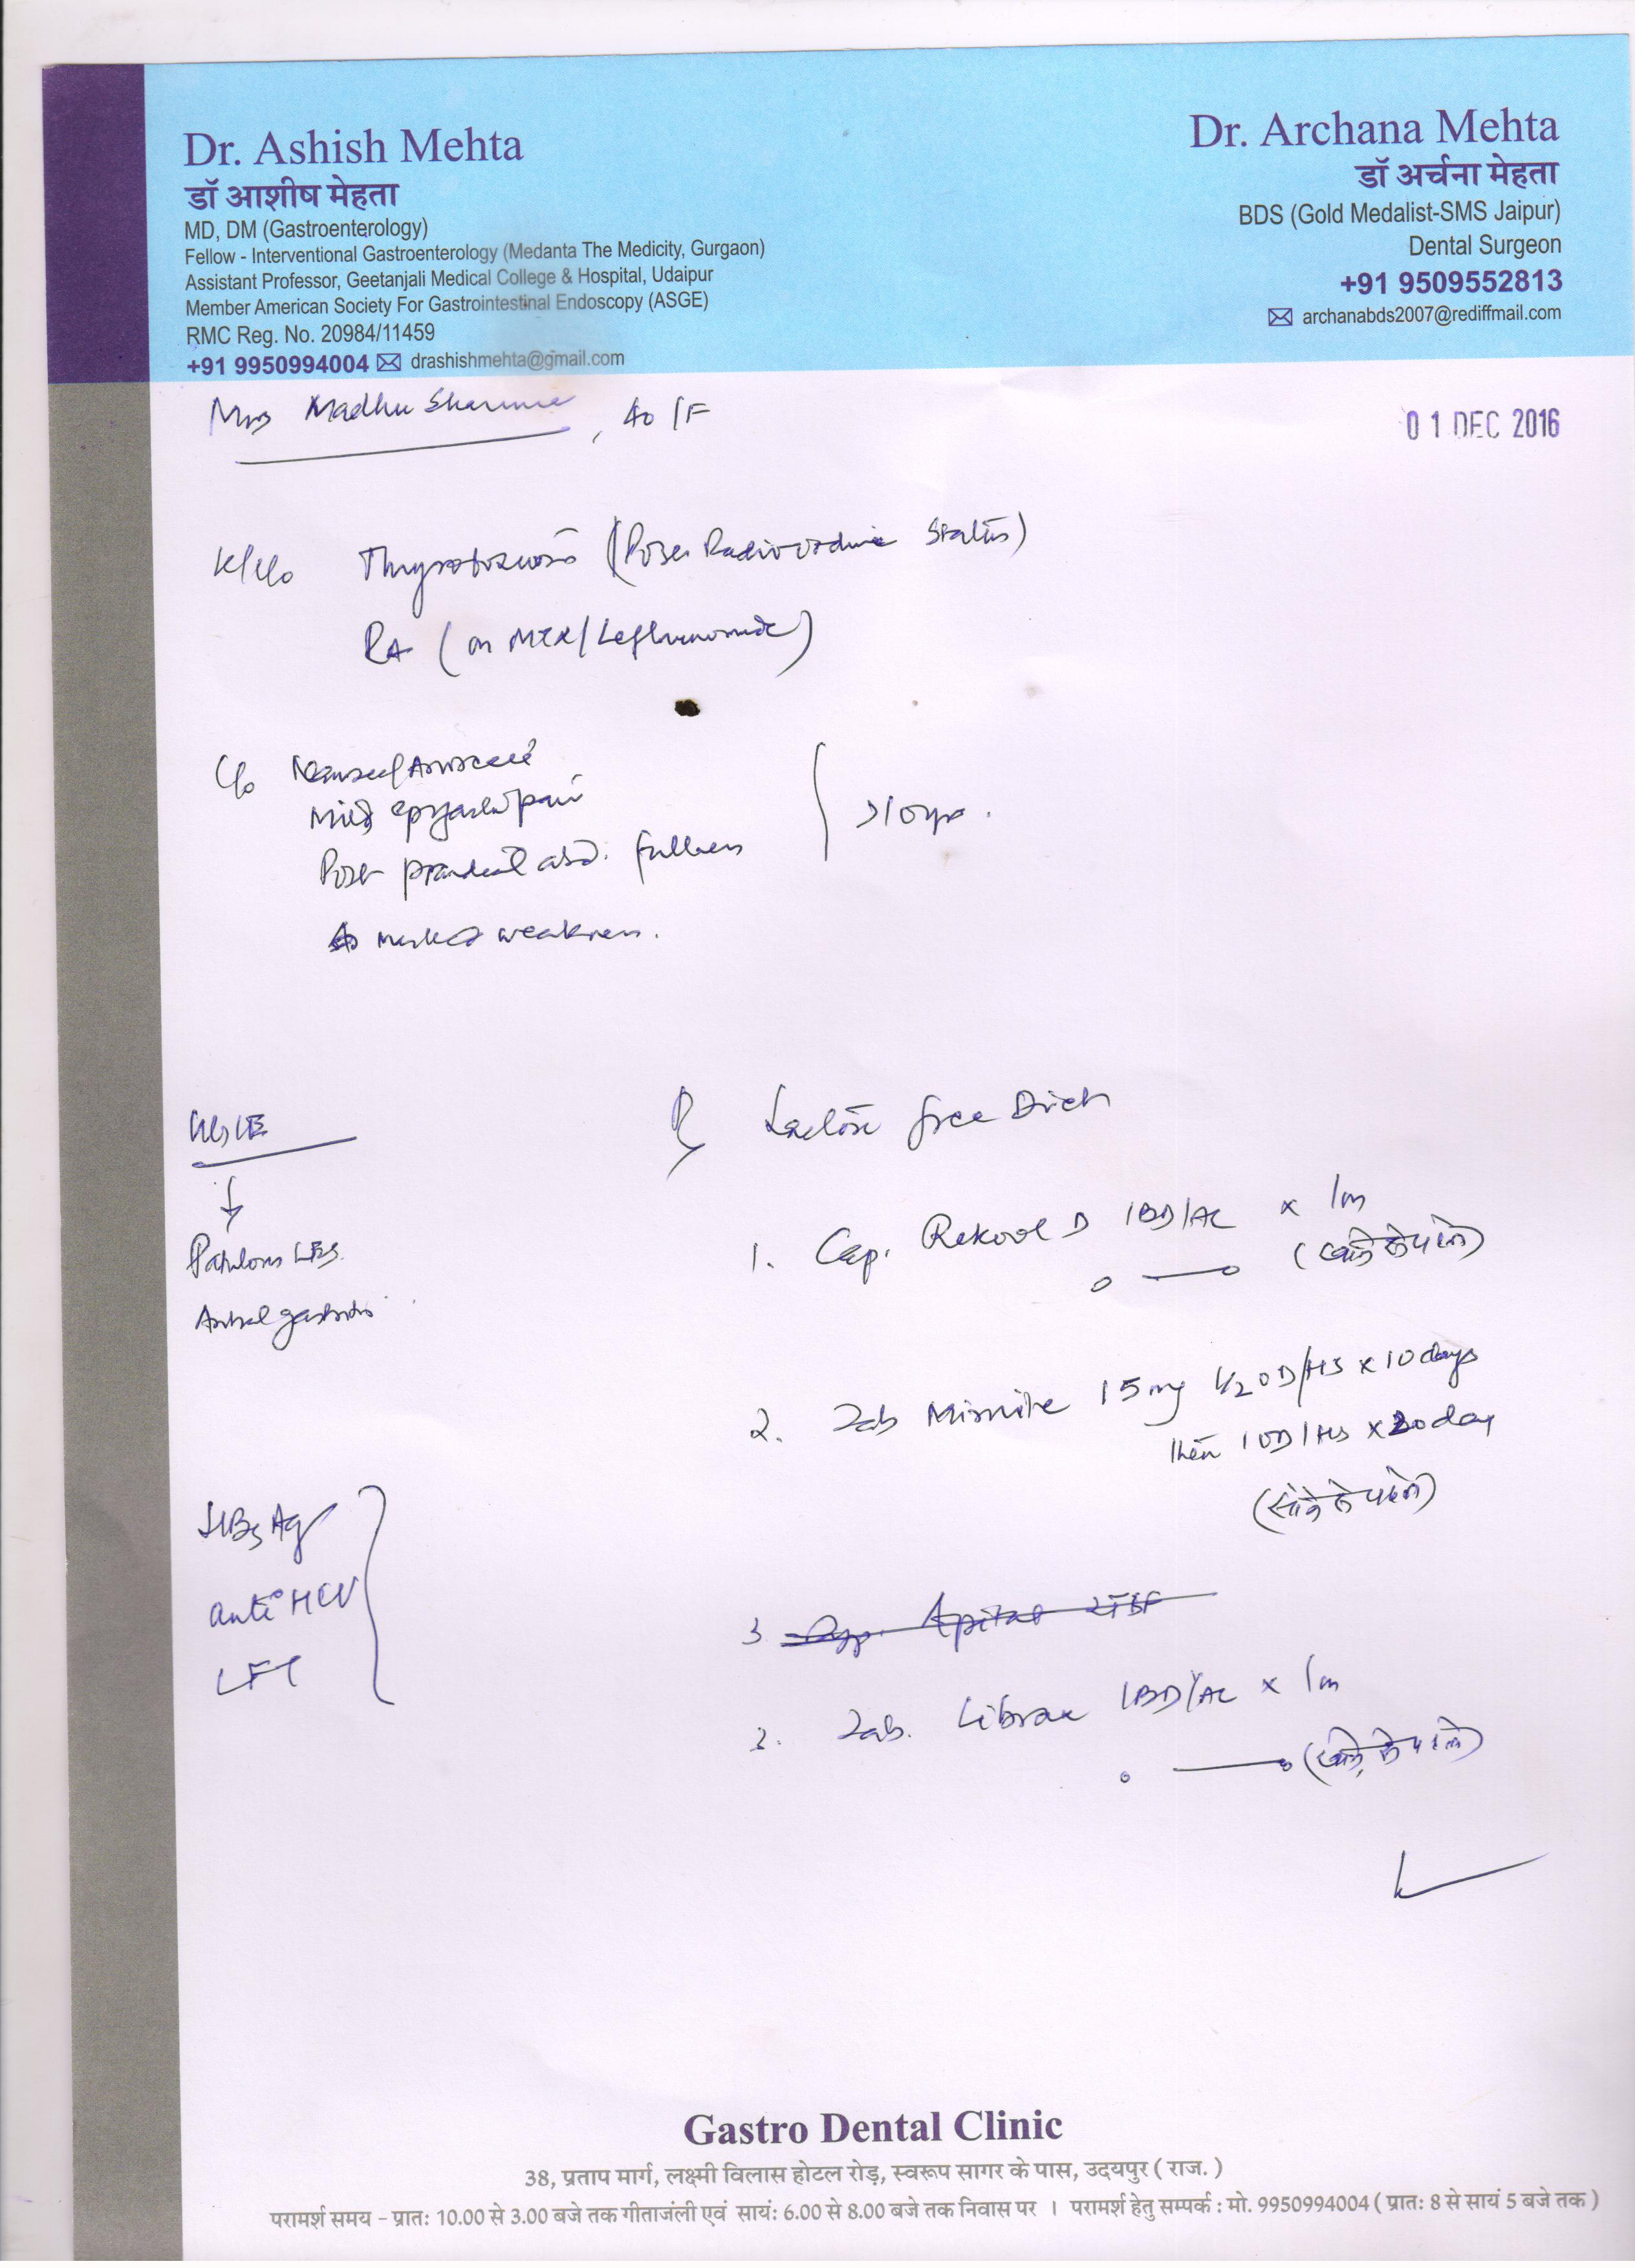 Dr. Ashish Mehta
डॉ आशीष मेहता
MD, DM (Gastroenterology)
Fellow - Interventional Gastroenterology (Medanta The Medicity, Gurgaon)
Assistant Professor, Geetanjali Medical College & Hospital, Udaipur
Member American Society For Gastrointestinal Endoscopy (ASGE)
RMC Reg. No. 20984/11459
+91 9950994004 drashishmehta@gmail.com
Dr. Archana Mehta
डॉ अर्चना मेहता
BDS (Gold Medalist-SMS Jaipur)
Dental Surgeon
+91 9509552813
archanabds2007@rediffmail.com
Mrs Madhu Sharma, 40/F
01 DEC 2016
K/c/o Thyrotoxicosis (Post Radioiodine Status)
RA (on MTX/Leflunomide)
C/o Nausea/Anorexia
Mild epigastric pain
Post prandial abd. fullness
marked weakness.
Patulous LES.
Antral gastritis
HBsAg
anti HCV
LFT
Lactose free Diet
1. Cap. Rekool D 1BD/AC x 1m
(खाने के पहले)
2. Tab 15mg 1/2 OD/HS x 10 days
then 1OD/HS x 20 day
(सोने के पहले)
3
3. Tab. Librax 1BD/AC x 1m
(खाने के पहले)
Gastro Dental Clinic
38, प्रताप मार्ग, लक्ष्मी विलास होटल रोड़, स्वरूप सागर के पास, उदयपुर ( राज. )
परामर्श समय - प्रातः 10.00 से 3.00 बजे तक गीताजंली एवं सायं: 6.00 से 8.00 बजे तक निवास पर । परामर्श हेतु सम्पर्क : मो. 9950994004 ( प्रातः 8 से सायं 5 बजे तक )